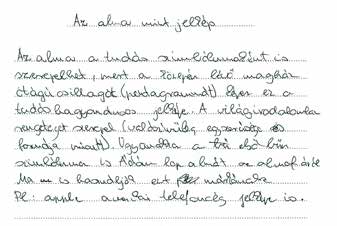 Az alma mint jelkép
Az alma a tudás szimbólumaként is
szerepelhet, mert a közepén lévő magház
ötágú csillagot (pentagrammát) képez ez a
tudás hagyományos jelképe. A világirodalomba
rengeteget szerepel (valószínűleg egyszerűsége és
formája miatt). Ugyanakkor a első bűn
szimbóluma is Ádám kap almát az almafáért
Ma is használják ezt márkának
Pl: apple amerikai telefoncég jelképe is.